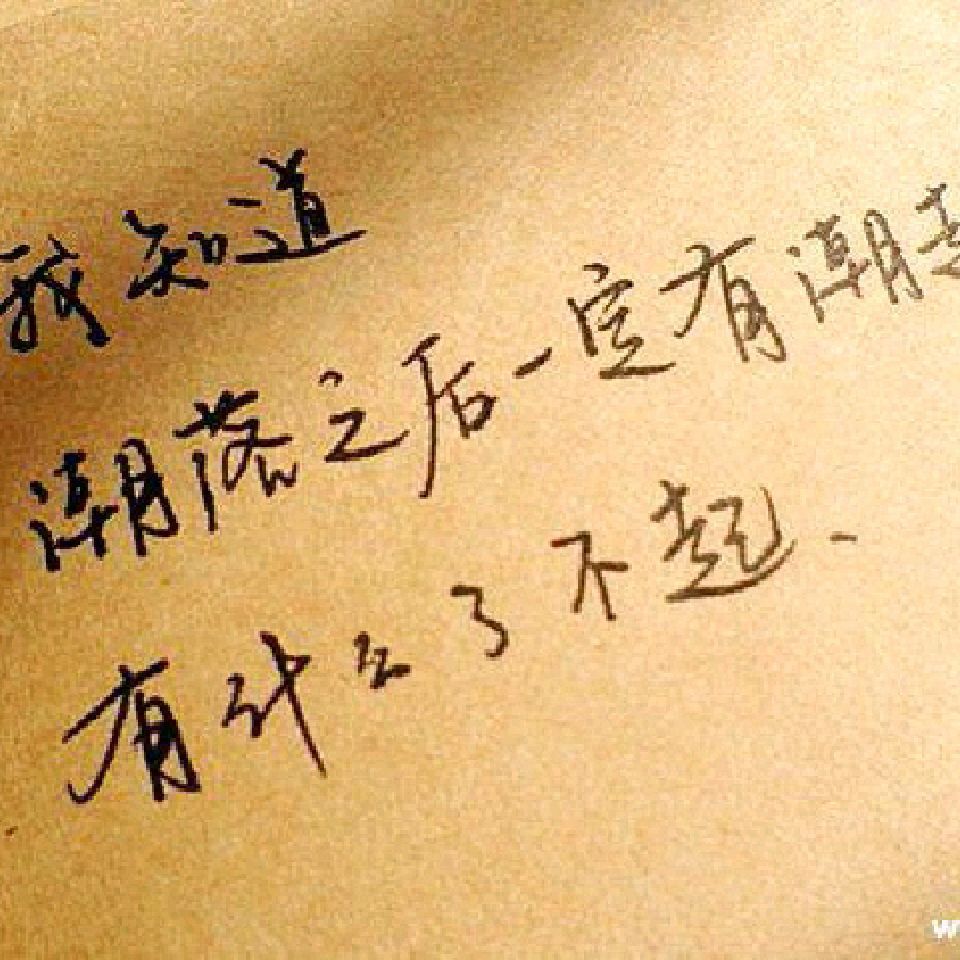 我知道
潮落之后一定有潮起
有什么了不起.
w